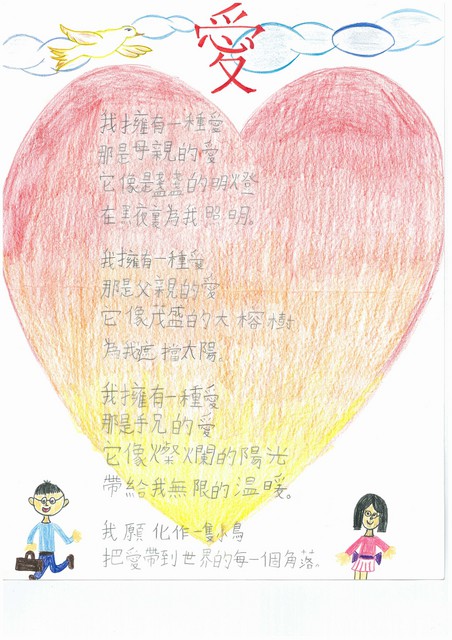 愛
我擁有一種愛
那是母親的愛
它像是盞盞的明燈
在黑夜裏為我照明。
我擁有一種愛
那是父親的愛
它像茂盛的大榕樹
為我遮擋太陽。
我擁有一種愛
那是手兄的愛
它像燦爛的陽光
帶給我無限的溫暖。
我願化作一隻小鳥
把愛帶到世界的每一個角落。